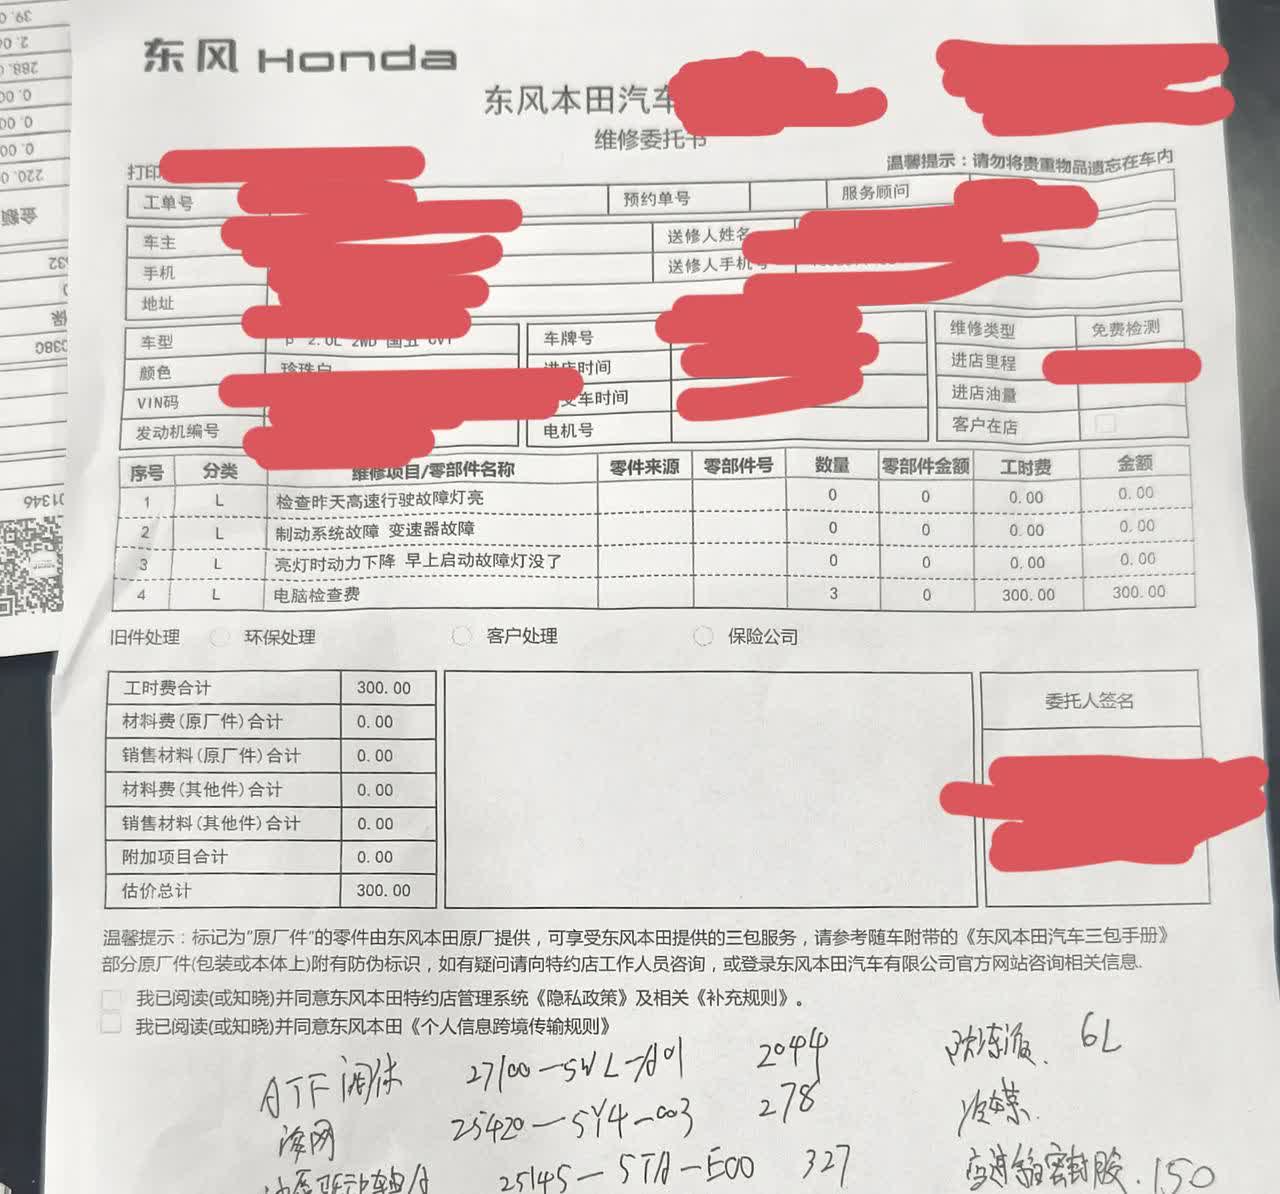 东风 Honda
东风本田汽车
维修委托书
温馨提示：请勿将贵重物品遗忘在车内
打印
工单号 预约单号 服务顾问
车主 送修人姓名
手机 送修人手机号
地址
车型 2.0L 2WD 国五 CVT 车牌号 维修类型 免费检测
颜色 珍珠白 进店时间 进店里程
VIN码 交车时间 进店油量
发动机编号 电机号 客户在店
序号 分类 维修项目/零部件名称 零件来源 零部件号 数量 零部件金额 工时费 金额
1 L 检查昨天高速行驶故障灯亮 0 0 0.00 0.00
2 L 制动系统故障 变速器故障 0 0 0.00 0.00
3 L 亮灯时动力下降 早上启动故障灯没了 0 0 0.00 0.00
4 L 电脑检查费 3 0 300.00 300.00
旧件处理 环保处理 客户处理 保险公司
工时费合计 300.00 委托人签名
材料费(原厂件)合计 0.00
销售材料(原厂件)合计 0.00
材料费(其他件)合计 0.00
销售材料(其他件)合计 0.00
附加项目合计 0.00
估价总计 300.00
温馨提示：标记为"原厂件"的零件由东风本田原厂提供，可享受东风本田提供的三包服务，请参考随车附带的《东风本田汽车三包手册》
部分原厂件(包装或本体上)附有防伪标识，如有疑问请向特约店工作人员咨询，或登录东风本田汽车有限公司官方网站咨询相关信息.
我已阅读(或知晓)并同意东风本田特约店管理系统《隐私政策》及相关《补充规则》。
我已阅读(或知晓)并同意东风本田《个人信息跨境传输规则》
ATF阀体 27100-5WL-A01 2044 防冻液. 6L
滤网 25420-5Y4-003 278 冷媒.
25145-5TA-E00 327 密封胶. 150